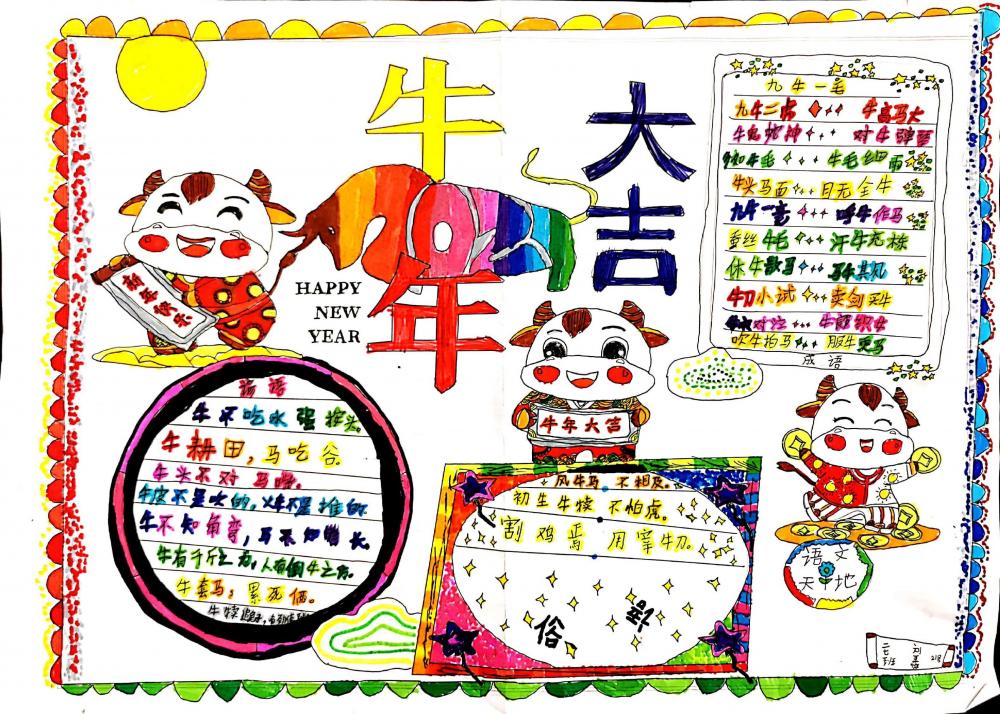 牛
年
大
吉
HAPPY
NEW
YEAR
新年快乐
九牛一毛
九牛二虎 牛高马大
对牛弹琴
牛毛细雨
牛头马面 目无全牛
九牛一毛 呼牛作马
蚕丝牛毛 汗牛充栋
休牛歇马 马牛其风
牛刀小试 卖剑买牛
对泣 牛郎织女
吹牛拍马 服牛乘马
成语
谚语
牛不吃水强按头。
牛耕田，马吃谷。
牛头不对马嘴。
牛皮不是吹的，火车不是推的
牛不知角弯，马不知脸长。
牛有千斤之力，人有倒牛之方。
牛套马，累死俩。
牛年大吉
风牛马不相及。
初生牛犊不怕虎。
割鸡焉用宰牛刀。
俗
语文
天地